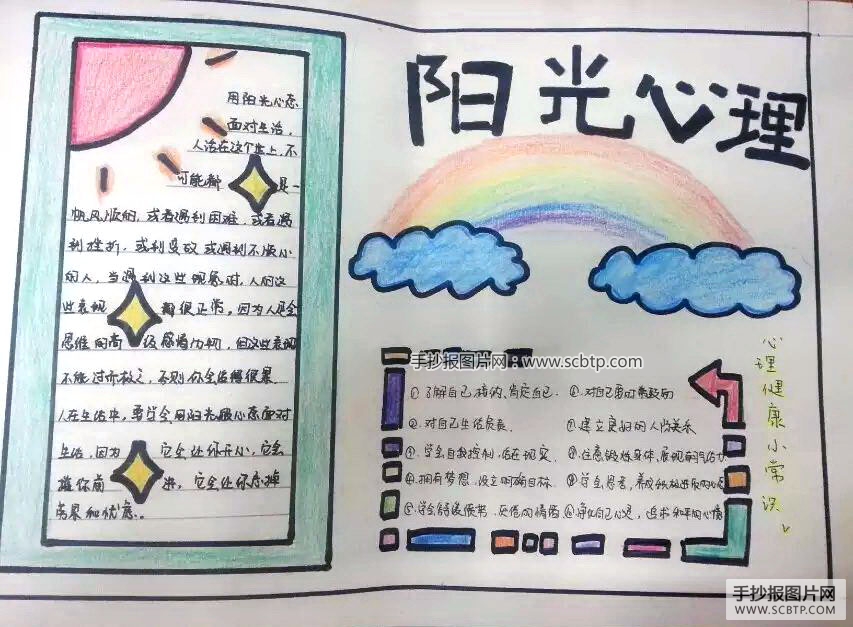 阳光心理
用阳光心态
面对生活,
人活在这个世上,不
可能都是一
帆风顺的,或者遇到困难,或者遇
到挫折,或到变故或遇到不顺心
的人,当遇到这些现象时,人的这
些表现都很正常,因为人是会
思维的高级感情动物,但这些表现
不能过而放之,否则你会活得很累
人在生活中,要学会用阳光般心态面对
生活,因为它会让你开心,它会
催你前进,它会让你忘掉
劳累和忧虑。
手抄报图片网:www.scbtp.com
①了解自己,接纳,肯定自己.
②对自己生活负责
③学会自我控制,活在现实
④拥有梦想,设立明确目标
⑤学会
⑥对自己
⑦建立良好的人际关系
⑧注意锻炼身体,展现
⑨学会思考,养成积极进取的
心理健康小常识
手抄报图片网
WWW.SCBTP.COM